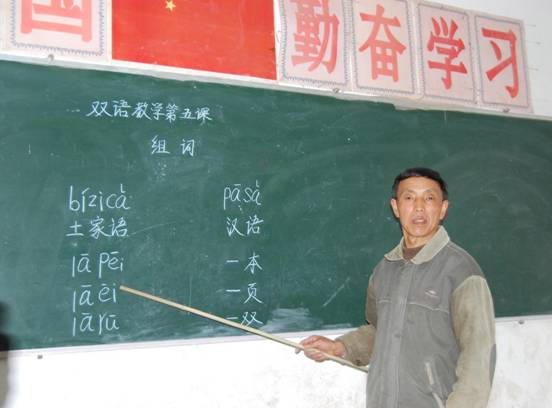 国 勤奋学习
双语教学第五课
组词
bízicả pāsả
土家语 汉语
lā pēi 一本
lā ēi 一页
lā rū 一双